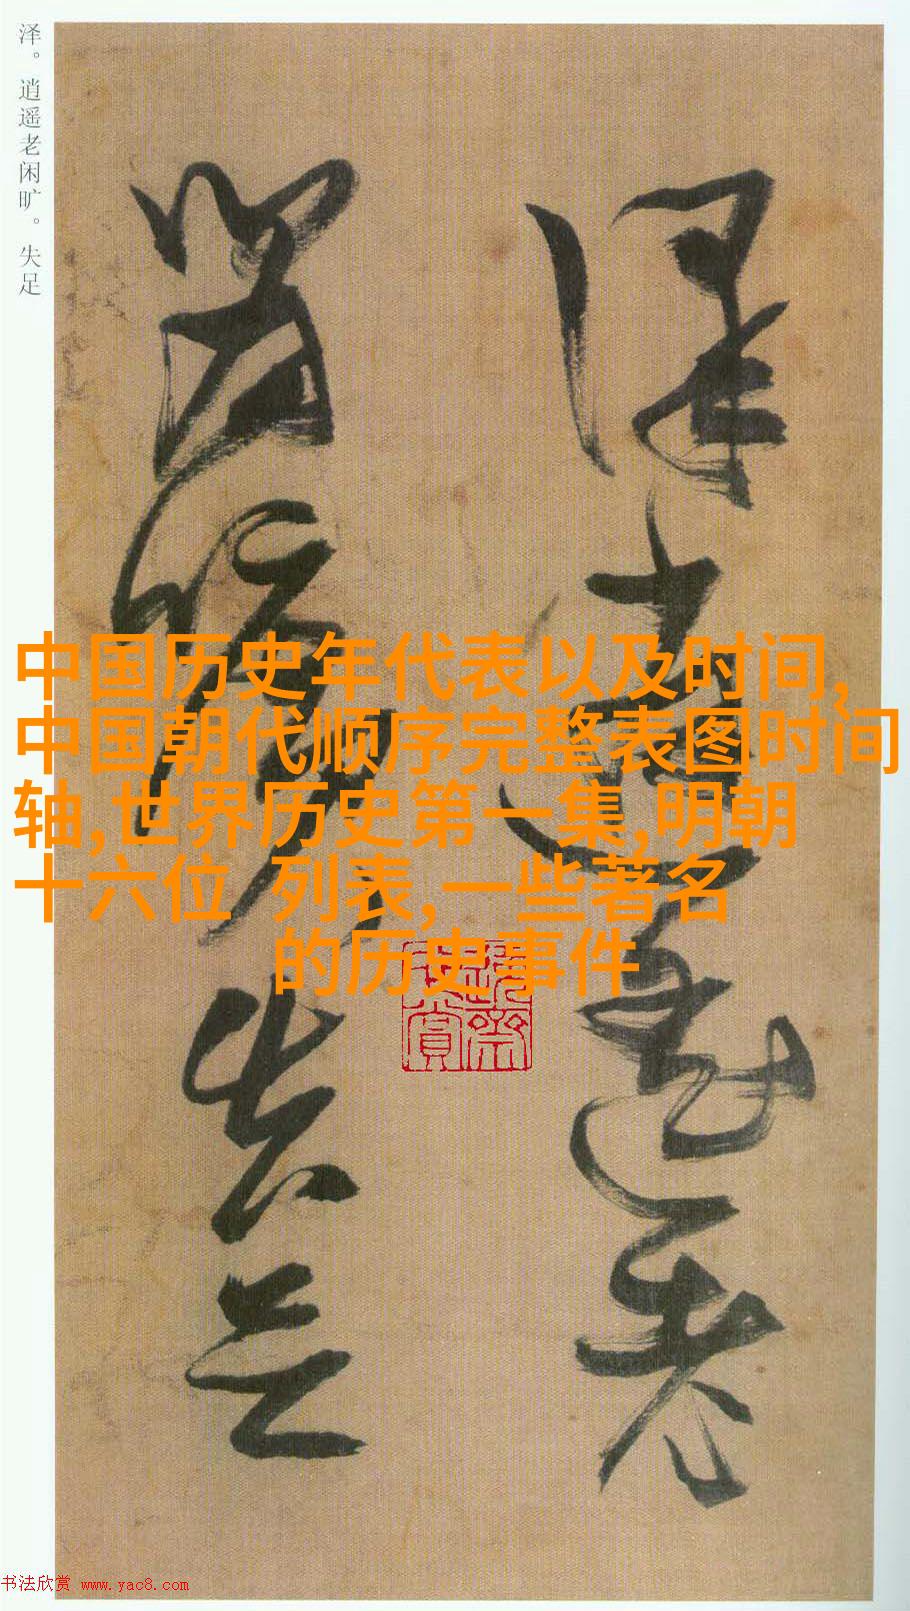 泽。逍遥老闲旷。失足
泽逍遥老
闲旷失足
中国历史年代表以及时间,
中国朝代顺序完整表图时间
轴,世界历史第一集,明朝
十六位 列表,一些著名
的历史事件
书法欣赏 www.yac8.com